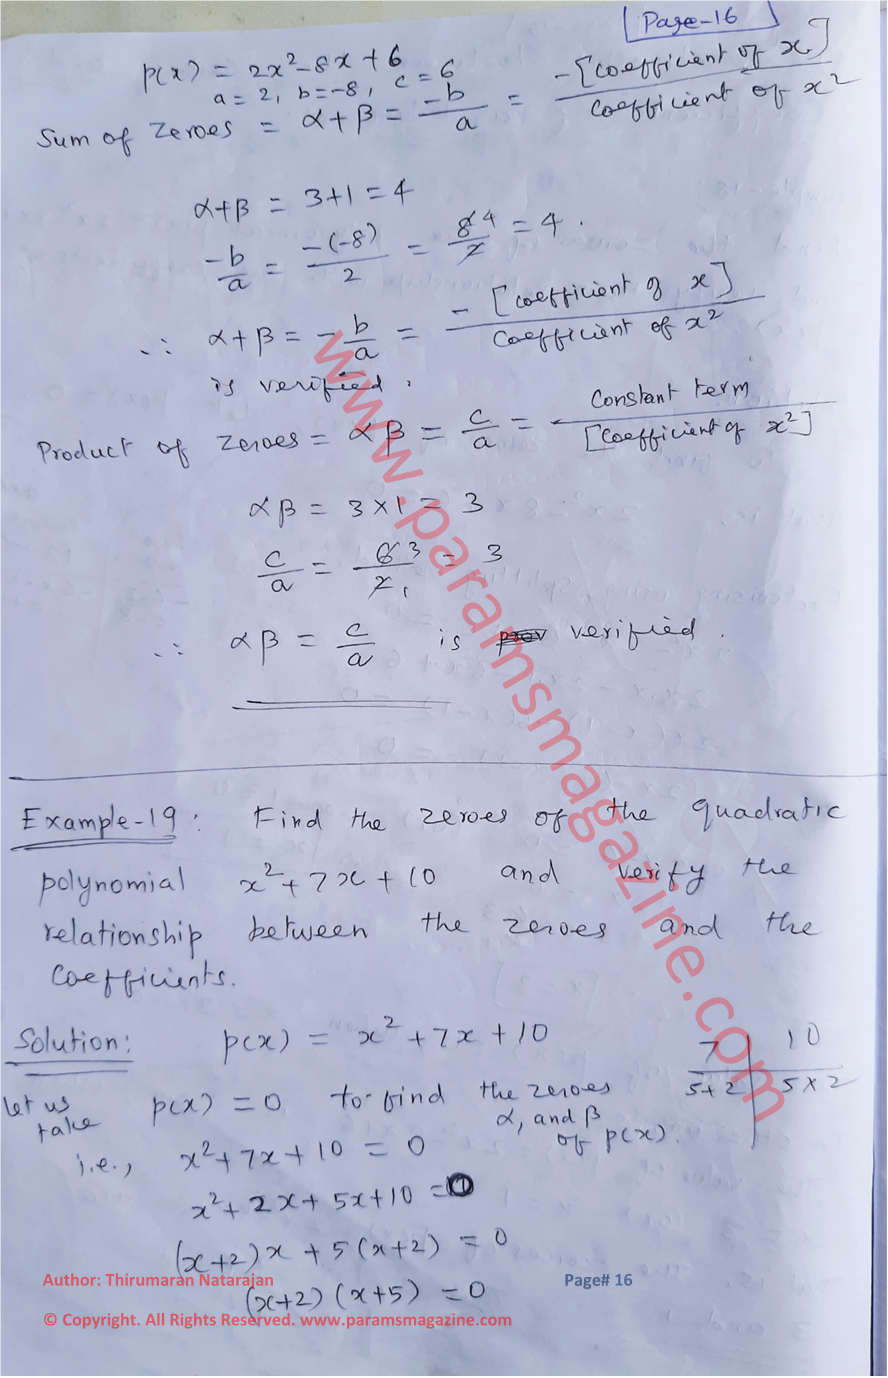 [Page-16]
p(x) = 2x² - 8x + 6
a = 2, b = -8, c = 6
Sum of Zeroes = α + β = -b/a = -[coefficient of x] / coefficient of x²
α+β = 3+1 = 4
-b/a = -(-8)/2 = 8 4/2 = 4.
∴ α+β = -b/a = -[coefficient of x] / coefficient of x²
is verified.
Product of zeroes = αβ = c/a = constant term / [coefficient of x²]
αβ = 3 × 1 = 3
c/a = 6 3/2 1 = 3
∴ αβ = c/a is verified.
Example-19: Find the zeroes of the quadratic
polynomial x² + 7x + 10 and verify the
relationship between the zeroes and the
coefficients.
Solution: p(x) = x² + 7x + 10
7 | 10
5+2 | 5×2
Let us take p(x) = 0 to find the zeroes
α, and β
of p(x).
i.e., x² + 7x + 10 = 0
x² + 2x + 5x + 10 = 0
(x+2)x + 5(x+2) = 0
(x+2)(x+5) = 0
Author: Thirumaran Natarajan Page# 16
© Copyright. All Rights Reserved. www.paramsmagazine.com
www.paramsmagazine.com